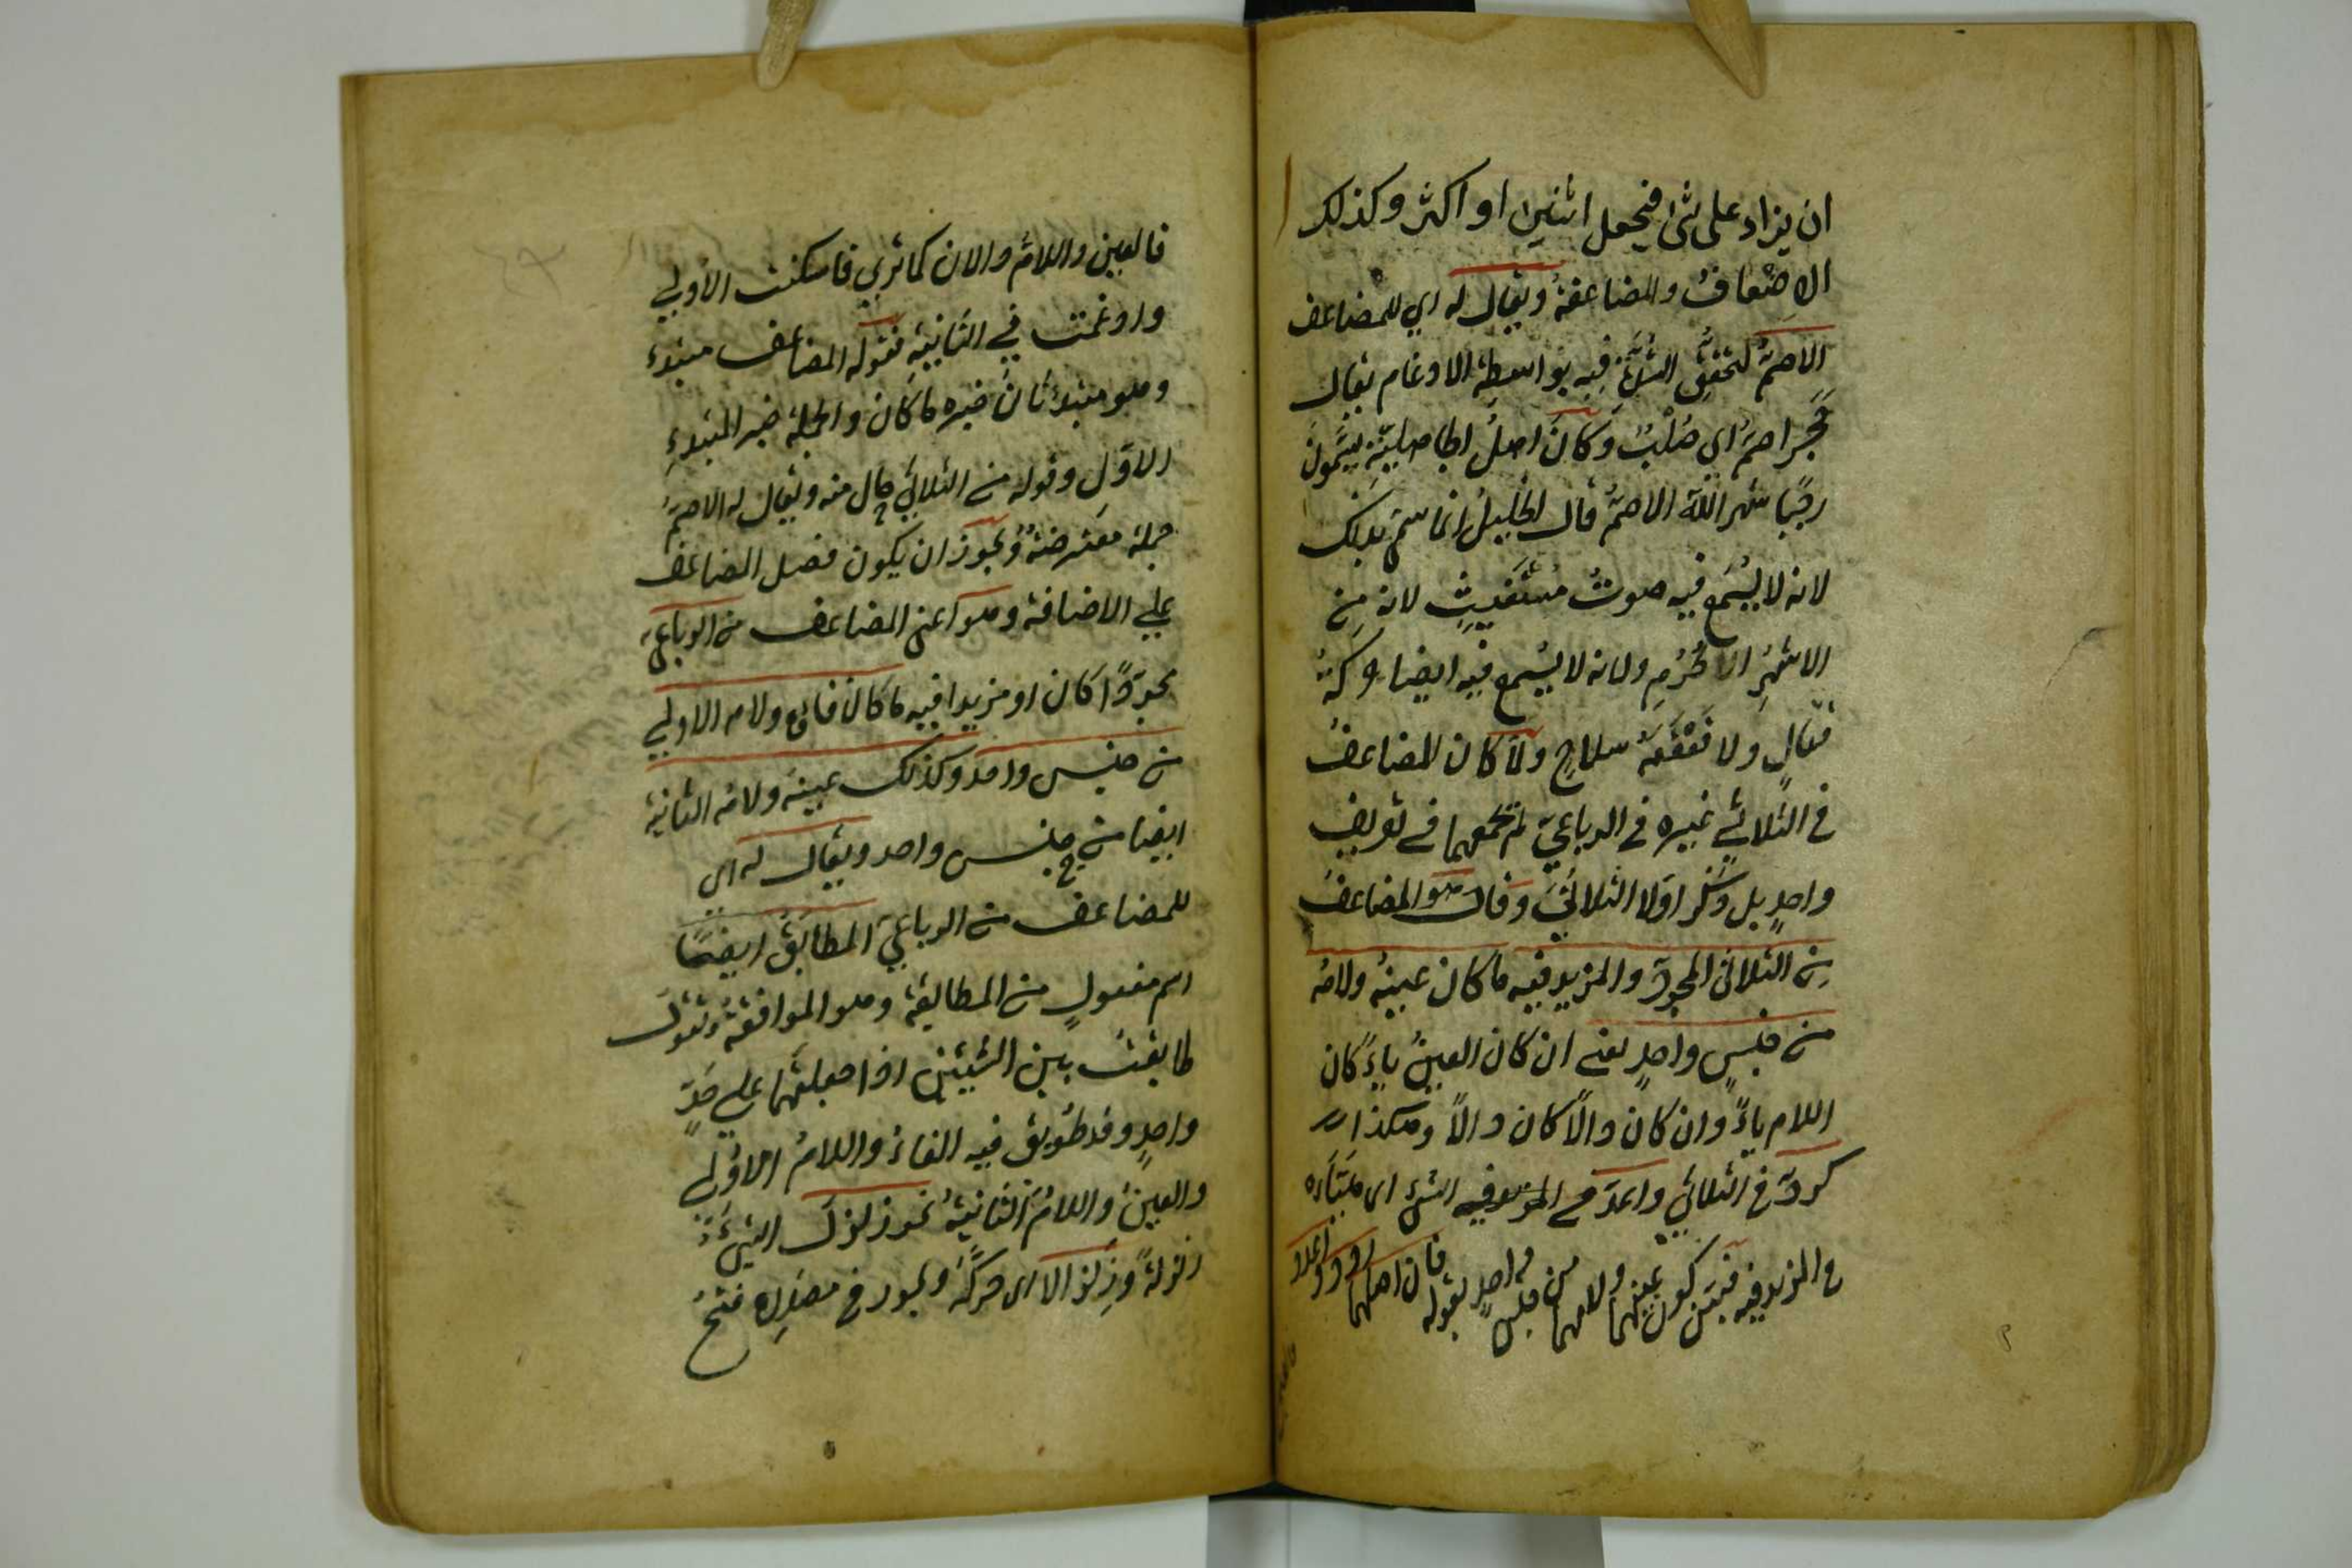 ان يزاد على شئ فيجعل اثنين او اكثر وكذلك
الاضعاف والمضاعفة ويقال له اي للمضاعف
الاصم لتحقق الشدة فيه بواسطة الادغام يقال
حجر اصم اي صلب وكان اهل الجاهلية يسمون
رجبا شهر الله الاصم قال الخليل انما سمي بذلك
لانه لا يسمع فيه صوت مستغيث لانه من
الاشهر الحرم ولانه لا يسمع فيه ايضا حركة
قتال ولا قعقعة سلاح ولما كان المضاعف
في الثلاثي غيره في الرباعي لم يجمعهما في تعريف
واحد بل ذكر اولا الثلاثي وقال هو المضاعف
من الثلاثي المجرد والمزيد فيه ما كان عينه ولامه
من جنس واحد يعني ان كان العين ياء كان
اللام ياء وان كان دالا كان دالا وهكذا
كرد في الثلاثي واعد في المزيد فيه الشئ اي هيّأه
في المزيد فيه فبين كون عينهما ولامهما من جنس واحد بقوله فان اصلهما ردد واعدد
فالعين واللام دالان كما ترى فاسكنت الاولى
وادغمت في الثانية فقوله المضاعف مبتدء
وهو مبتدء ثان خبره ما كان والجملة خبر المبتدء
الاول وقوله من الثلاثي حال منه ويقال له الاصم
جملة معترضة ويجوز ان يكون فصل المضاعف
على الاضافة وهو اعني المضاعف من الرباعي
مجردا كان او مزيدا فيه ما كان فاؤه ولامه الاولى
من جنس واحد وكذلك عينه ولامه الثانية
ايضا من جنس واحد ويقال له اي
للمضاعف من الرباعي المطابق ايضا
اسم مفعول من المطابقة وهو الموافقة وتقول
طابقت بين الشيئين اذا جعلتهما على حد
واحد وقد طوبق فيه الفاء واللام الاولى
والعين واللام الثانية نحو زلزل الشئ
زلزلة وزلزالا اي حركه ويجوز في مصدره فتح